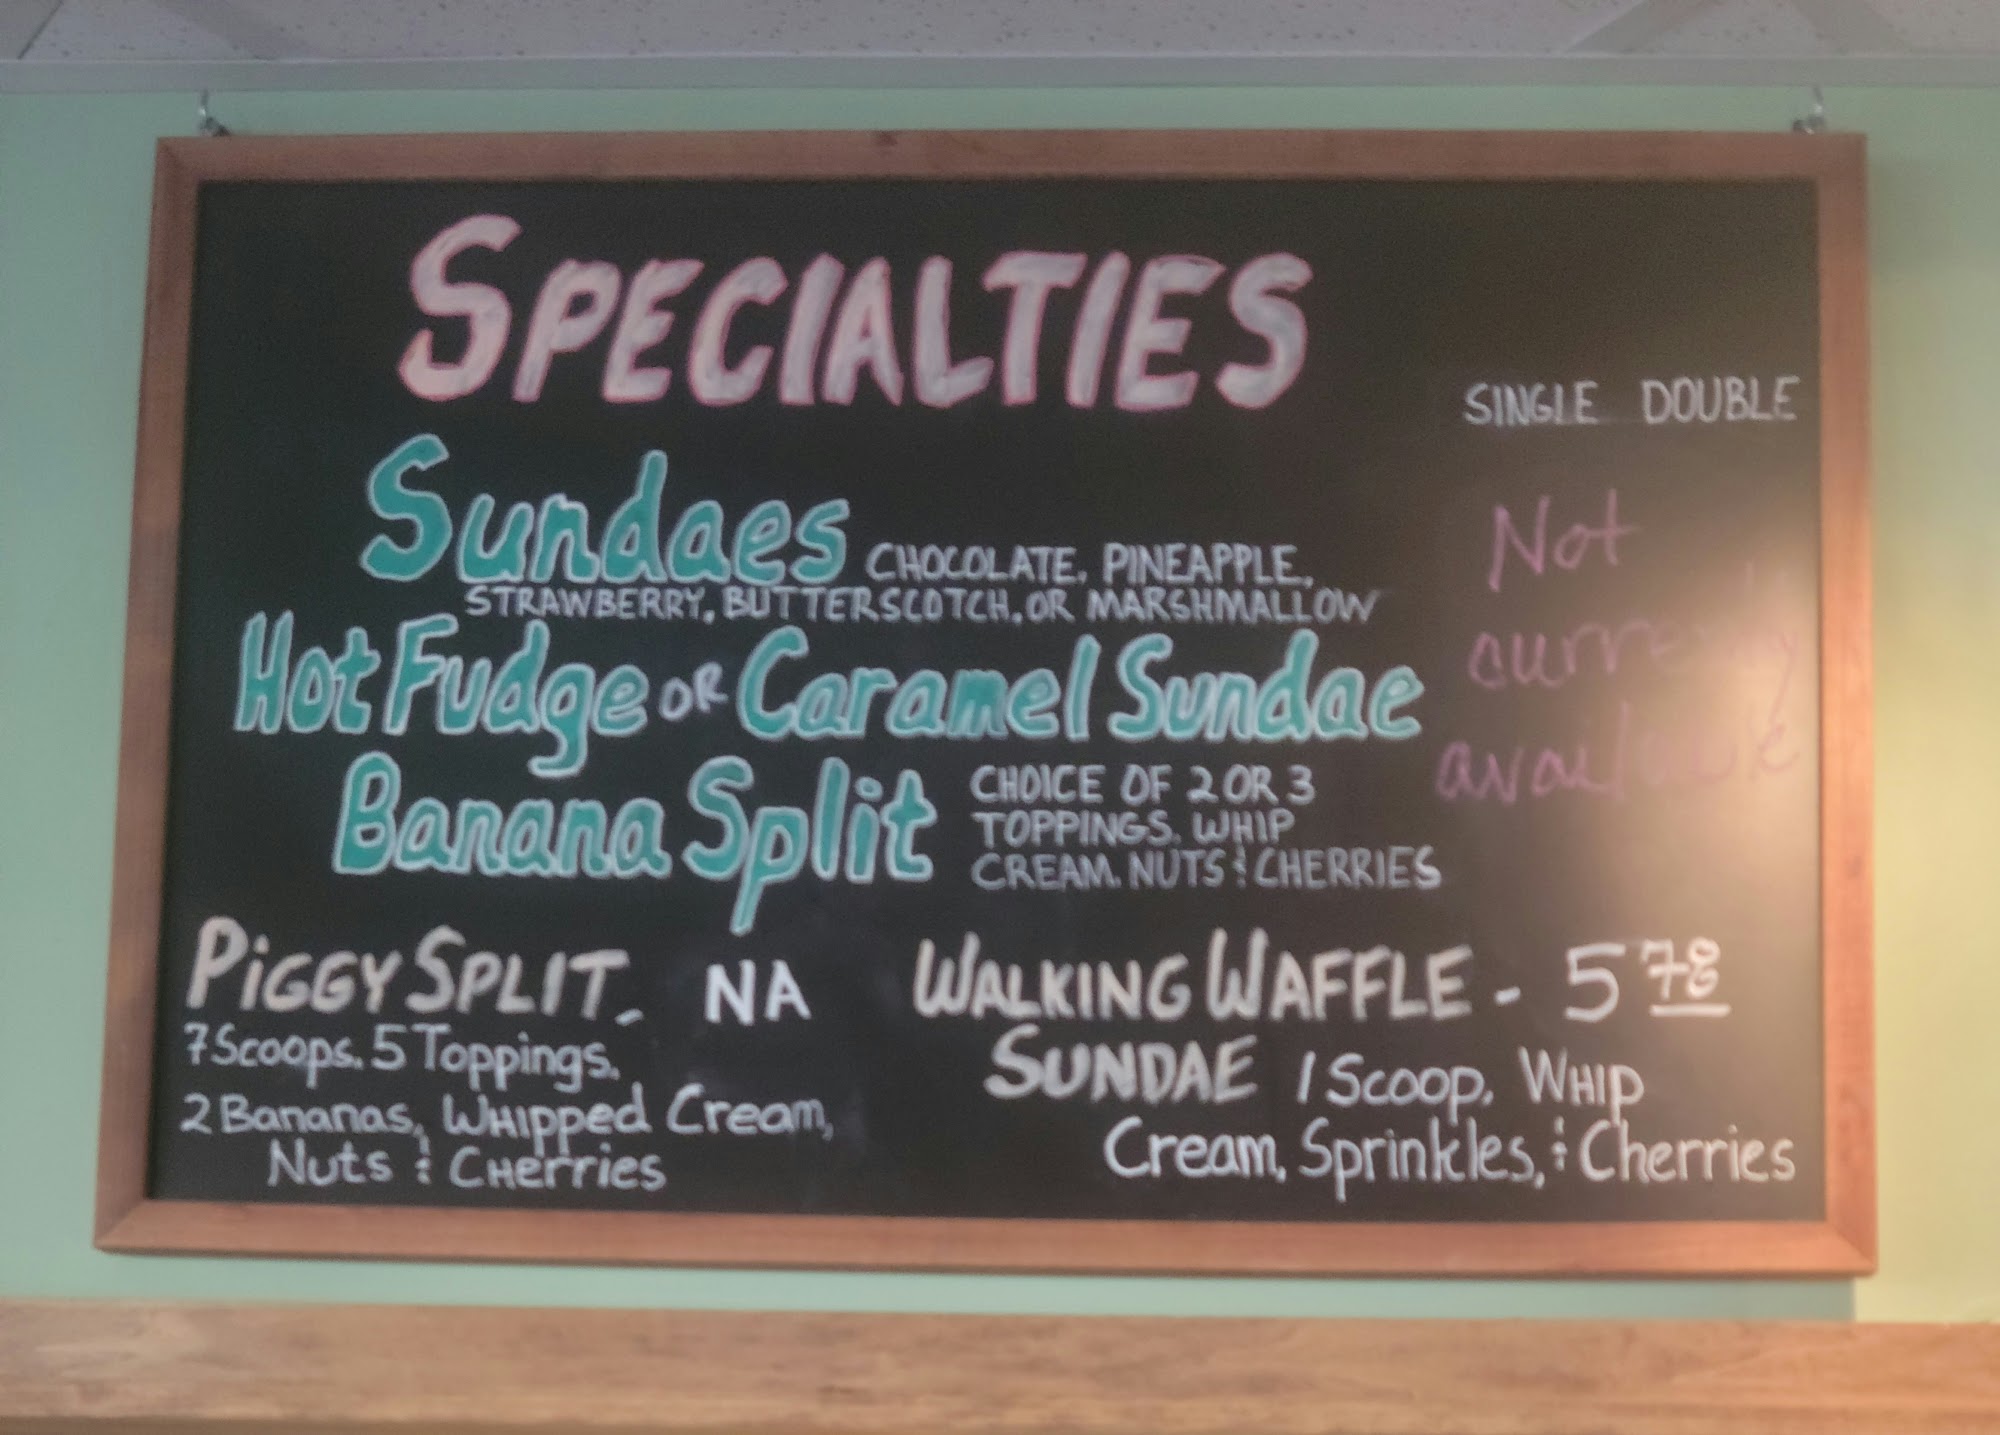 SPECIALTIES
SINGLE DOUBLE
Sundaes CHOCOLATE, PINEAPPLE,
STRAWBERRY, BUTTERSCOTCH, OR MARSHMALLOW
Hot Fudge OR Caramel Sundae
Banana Split
CHOICE OF 2 OR 3
TOPPINGS, WHIP
CREAM, NUTS & CHERRIES
Not
currently
available
PIGGY SPLIT - NA
7 Scoops, 5 Toppings,
2 Bananas, Whipped Cream,
Nuts & Cherries
WALKING WAFFLE - 5 78
SUNDAE 1 Scoop, Whip
Cream, Sprinkles, & Cherries